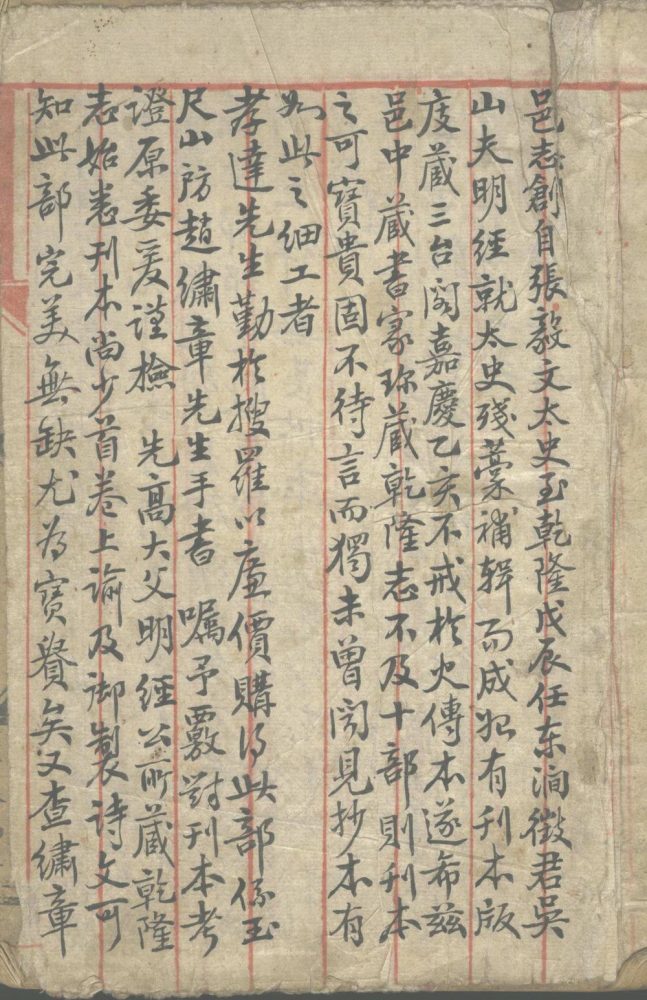 邑志創自張毅文太史至乾隆戊辰任东澗徵君吳
山夫明經就太史殘藁補辑而成始有刊本版
庋藏三台阁嘉慶乙亥不戒於火傳本遂希兹
邑中藏書家珎藏乾隆志不及十部則刊本
之可寳貴固不待言而獨未曾閱見抄本有
如此之细工者
孝達先生勤於搜羅以廉價購得此部係玉
尺山房趙繡章先生手書 嘱予覈對刊本考
證原委爰谨檢 先高大父明經公所藏乾隆
志始悉刊本尚少首卷上諭及御製诗文可
知此部完美無缺尤為寳貴矣又查繡章